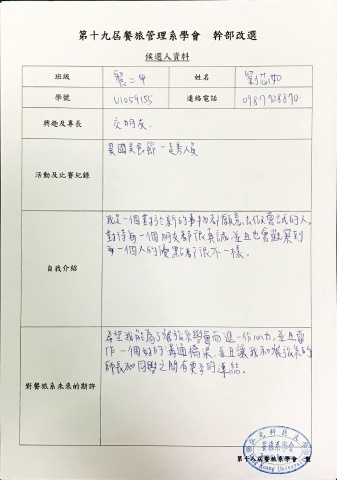 第十九屆餐旅管理系學會 幹部改選
候選人資料
班級 餐二甲 姓名
學號 U1054155 連絡電話 0987728870
興趣及專長 交朋友.
活動及比賽紀錄 異國美食節-工作人員
自我介紹
我是一個對於新的事物都願意去做嘗試的人。
對待每一個朋友都很真誠,並且也會觀察到
每一個人的優點都很不一樣。
對餐旅系未來的期許
希望我能為了餐旅系學會而進一份心力,並且當
作一個好的溝通橋梁,並且讓我和餐旅系的
師長和同學之間有更多的連結。
餐旅系學會
第十八屆餐旅系學會 製